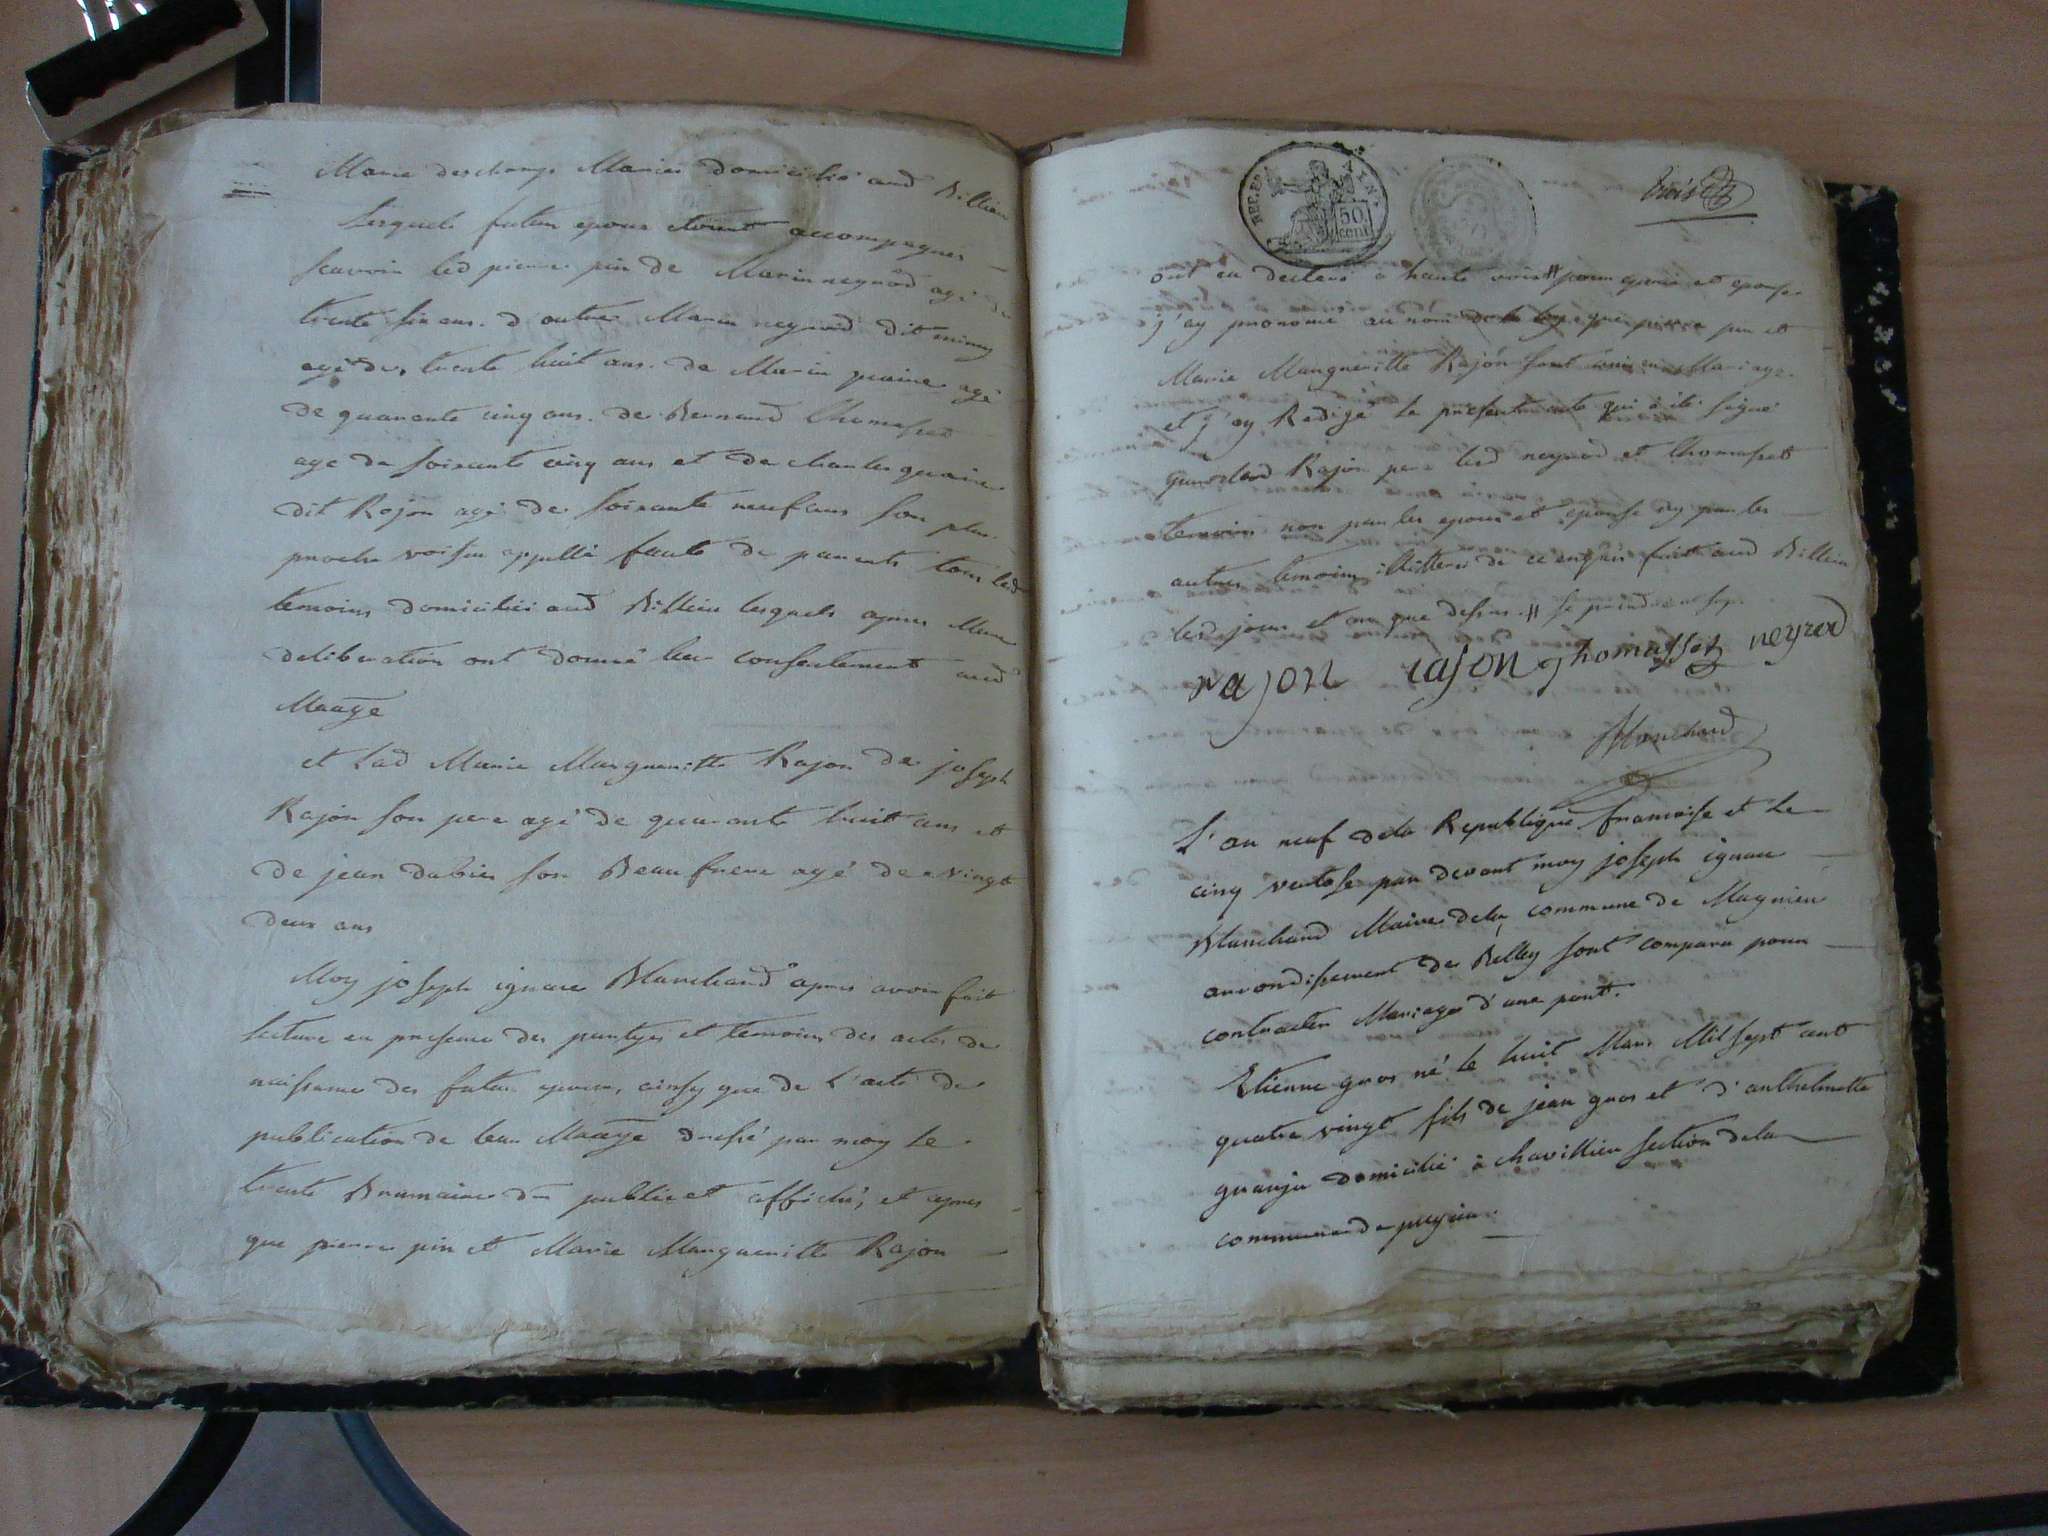 Marie deschamps Mariés domicilié aud Billieu
lesquels futur epoux etoint accompagnes
scavoir led pierre pin de Marin neyrod agé de
trente six ans. d'autre Marin neyrod dit
agé de trente huit ans. de Marin agé
de quarante cinq ans. de Bernard thomasset
age de soixante cinq ans et de charles
dit Rajon agé de soixante neuf ans son plus
proche voisin appellé faute de parents tous led
temoins domiciliés aud Billieu lesquels apres Mure
deliberation ont donné leur consentement aud
Maage
et lad Marie Margueritte Rajon de joseph
Rajon son pere agé de quarante huit ans et
de jean dubier son Beau frere agé de vingt
deux ans
Moy joseph ignace Blanchard apres avoir fait
lecture en presence des partyes et temoins des actes de
naissance des futur epoux, ainsy que de l'acte de
publication de leur Maage dressé par moy le
trente Brumaire d publié et affiché, et apres
que pierre pin et Marie Margueritte Rajon
REP. FRA. 50 cent
trois
ont eu declaré a haute voix # pour epoux et epouse
j'ay prononcé au nom de la loy que pierre pin et
Marie Margueritte Rajon sont unis en Mariage.
et j'ay Redigé le present acte qui a été signé
par lad Rajon pere led neyrod et thomasset
temoins non par les epoux et epouse ny par les
autres temoins illitteré de ce enquis fait aud Billieu
led jour et an que dessus. # se prendre
rajon rajon thomasset neyrod
Blanchard
L'an neuf dela Republique francaise et le
cinq ventose par devant moy joseph ignace
Blanchard Maire dela commune de Magnieu
arrondissement de Belley sont comparu pour
contracter Mariage d'une part.
Etienne gros né le huit Mars Mil sept cent
quatre vingt fils de jean gros et d'anthelmette
domicilié à chavillieu section dela
commune de pugieu.